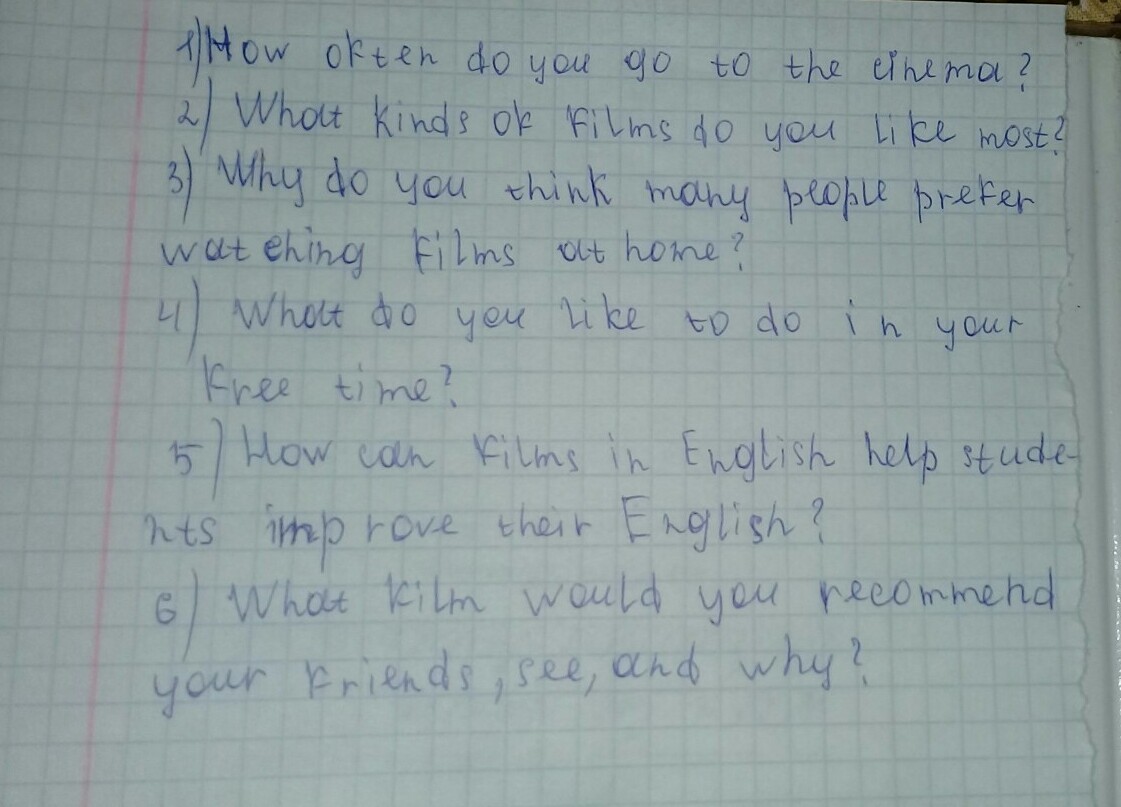 1) How often do you go to the cinema?
2) What kinds of films do you like most?
3) Why do you think many people prefer
watching films at home?
4) What do you like to do in your
free time?
5) How can films in English help stude-
nts improve their English?
6) What film would you recommend
your friends, see, and why?